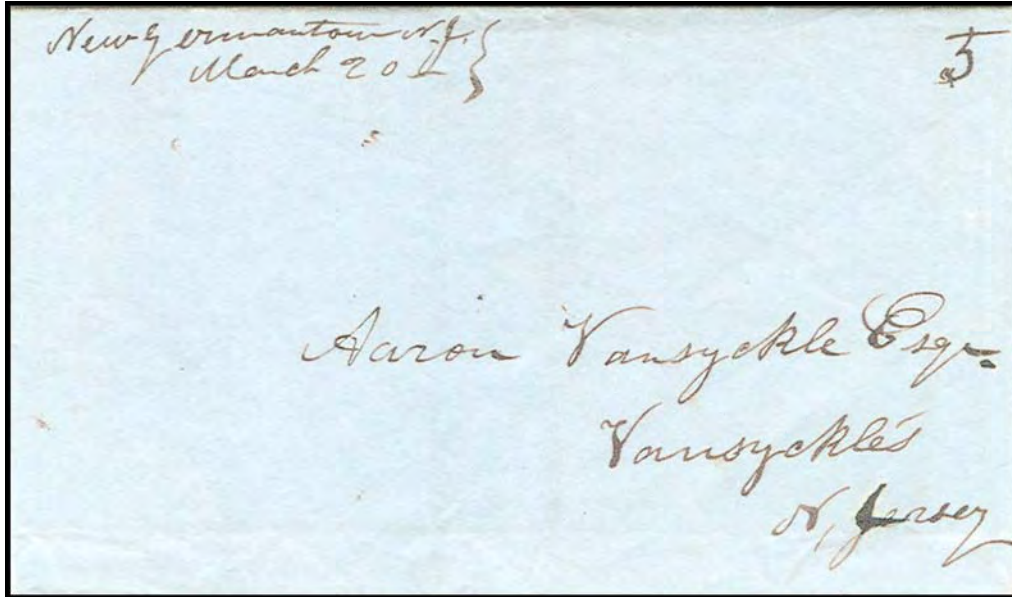 New Germantown N.J.
March 20
5
Aaron Vansyckle Esqr.
Vansyckle's
N, Jersey